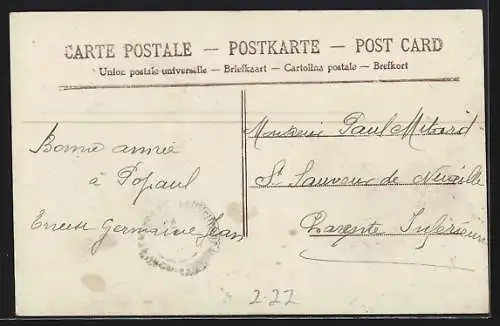 CARTE POSTALE — POSTKARTE — POST CARD
Union postale universelle — Briefkaart — Cartolina postale — Brefkort
Monsieur Paul
Bonne année
St Sauveur de Nuaillé
à Popaul
Charente Inférieure
Germaine Jean
2-22